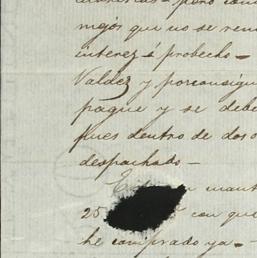 pero con
mejor que no se ren
interez á probecho—
Valdez y porconsigui
pague y se debe
pues dentro de dos o
despachado—
mant
25 con que
he comprado ya—